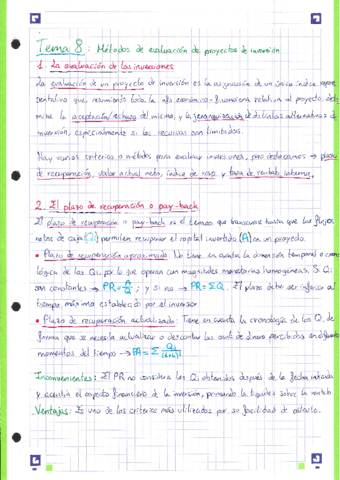 Tema 8: Métodos de evaluación de proyectos de inversión
1. La evaluación de las inversiones
La evaluación de un proyecto de inversión es la asignación de un único índice repre-
sentativo que, resumiendo toda la info económico-financiera relativa al proyecto, deter-
mine la aceptación/rechazo del mismo, y la jerarquización de distintas alternativas de
inversión, especialmente si los recursos son limitados.
Hay varios criterios o métodos para evaluar inversiones, pero destacamos → plazo
de recuperación, valor actual neto, índice de rap. y tasa de rentab. interna.
2. El plazo de recuperación o pay-back
El plazo de recuperación o pay-back es el tiempo que transcurre hasta que los flujos
netos de caja (Q) permiten recuperar el capital invertido (A) en un proyecto.
• Plazo de recuperación aproximado: No tiene en cuenta la dimensión temporal o crono-
lógica de los Q, por lo que operan con magnitudes monetarias homogéneas. Si Q
son constantes → PR = A/Q ; y si no → PR = ΣQ. El plazo debe ser inferior al
tiempo máximo establecido por el inversor
• Plazo de recuperación actualizado: Tiene en cuenta la cronología de los Q, de
forma que se necesita actualizar o descontar las cant. de dinero percibidas en diferentes
momentos del tiempo → PA = Σ
Inconvenientes: El PR no considera los Q obtenidos después de la fecha indicada
y acentúa el aspecto financiero de la inversión, primando la liquidez sobre la rentab.
Ventajas: Es uno de los criterios más utilizados por su facilidad de cálculo.